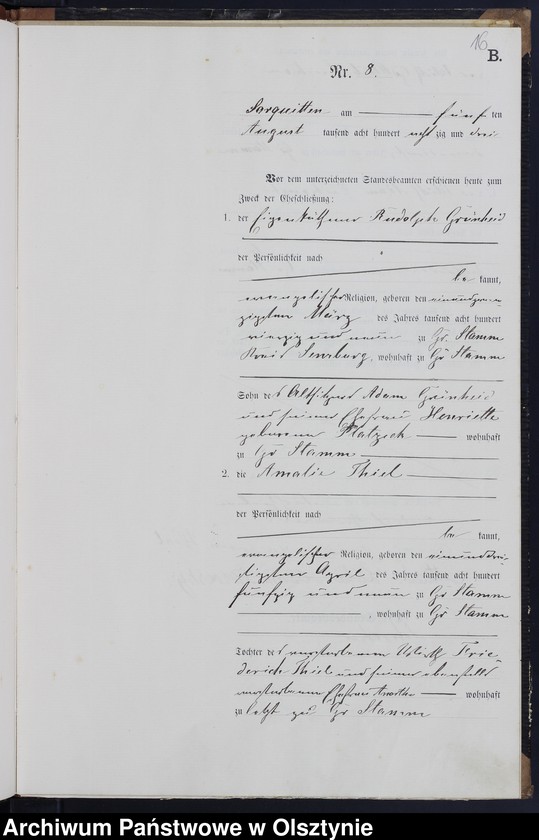 16
B.
Nr. 8.
Sorquitten am fünften
August tausend acht hundert achtzig und drei
Vor dem unterzeichneten Standesbeamten erschienen heute zum
Zweck der Eheschließung:
1. der Eigenkäthner Rudolph Grünheid
der Persönlichkeit nach
bekannt,
evangelischer Religion, geboren den einundzwan
zigsten März des Jahres tausend acht hundert
vierzig und neun zu Gr. Stamm
Kreis Sensburg, wohnhaft zu Gr Stamm
Sohn des Altsitzers Adam Grünheid
und seiner Ehefrau Henriette
geborenen wohnhaft
zu Gr Stamm
2. die Amalie Thiel
der Persönlichkeit nach
bekannt,
evangelischer Religion, geboren den
April des Jahres tausend acht hundert
fünfzig und neun zu Gr Stamm
, wohnhaft zu Gr Stamm
Tochter des verstorbenen Frie-
derich Thiel und seiner ebenfalls
verstorbenen Ehefrau wohnhaft
zuletzt zu Gr Stamm
Archiwum Państwowe w Olsztynie